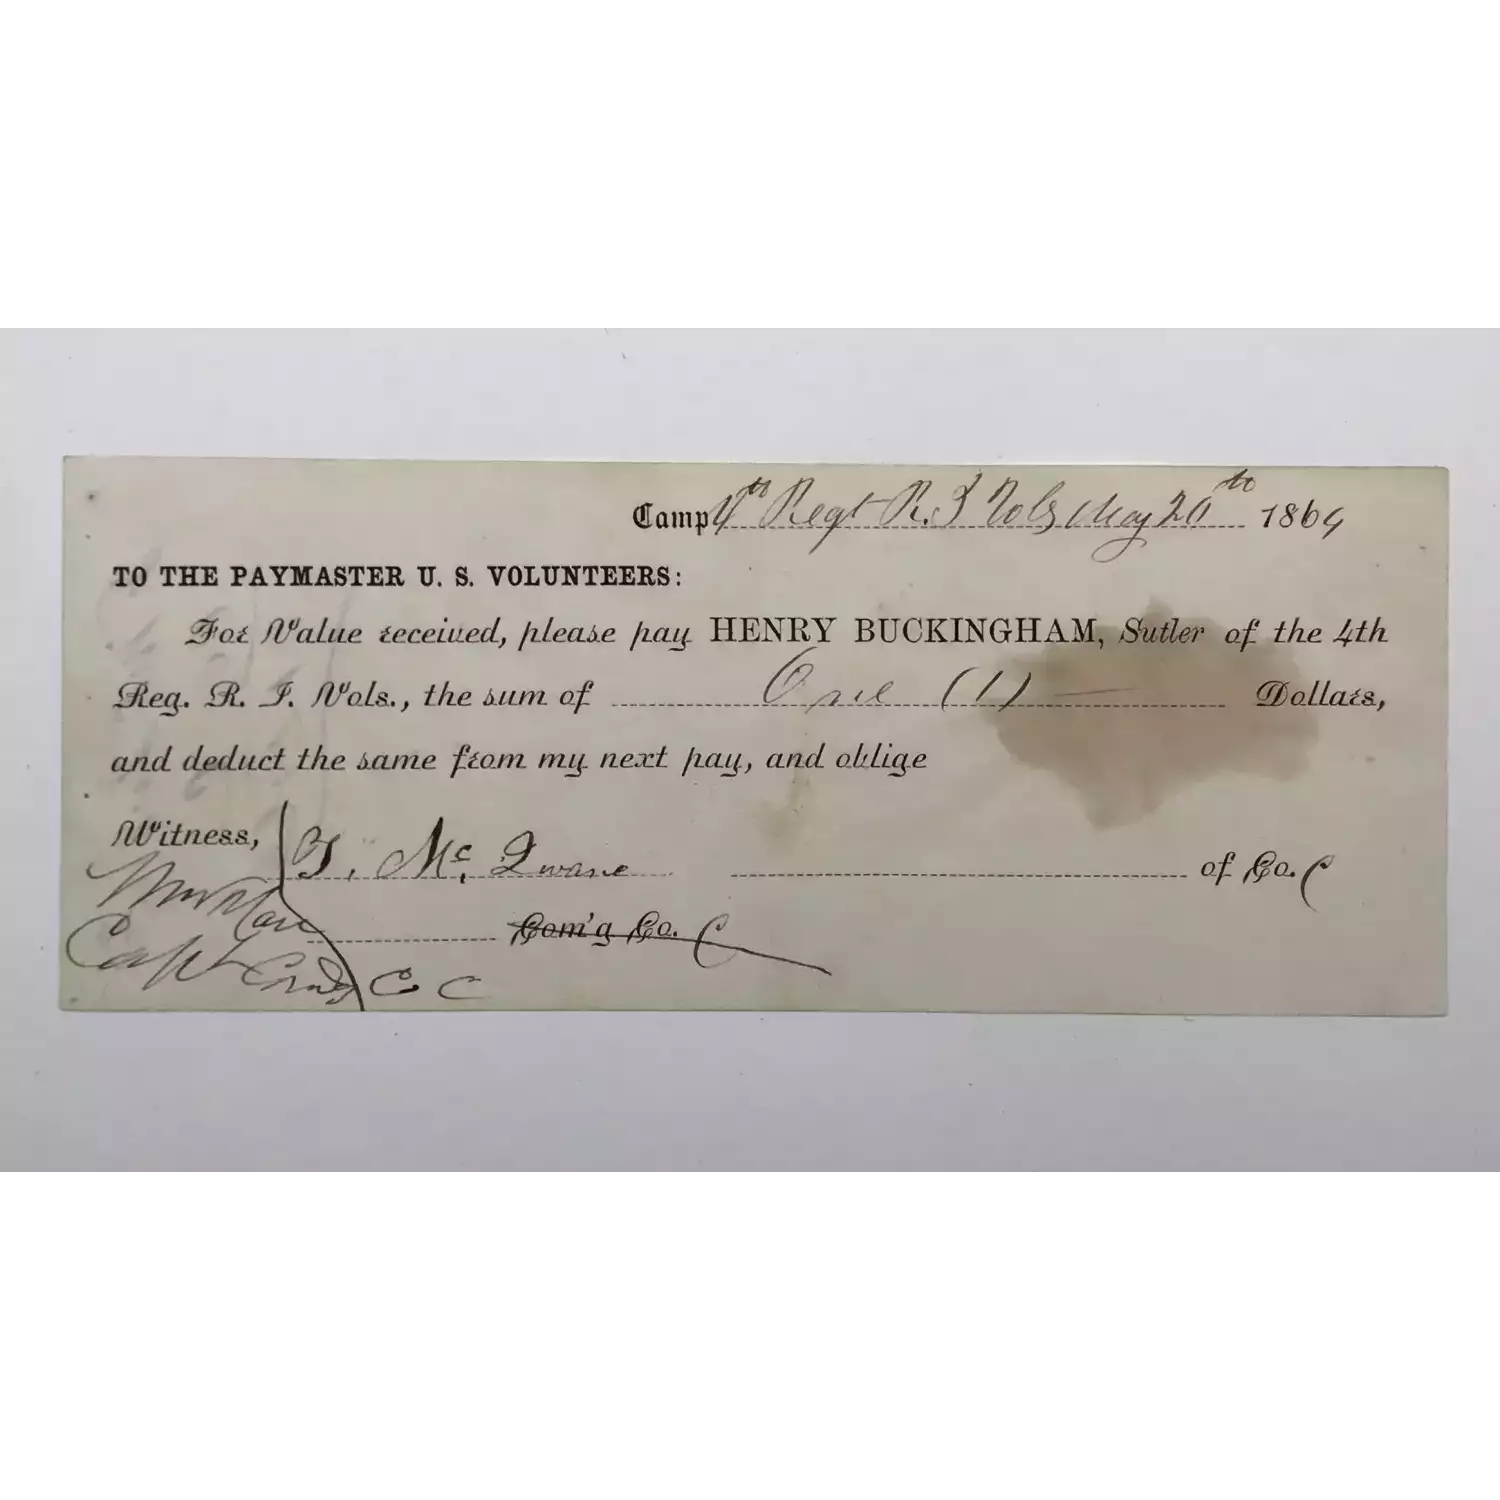 Camp 4th Regt R. I Vols May 20th 1864
TO THE PAYMASTER U. S. VOLUNTEERS:
For Value received, please pay HENRY BUCKINGHAM, Sutler of the 4th
Reg. R. I. Vols., the sum of One (1) Dollars,
and deduct the same from my next pay, and oblige
Witness, T. Mc. Qwane of Co. C
Com'g Co. C
Capt Comdg Co C